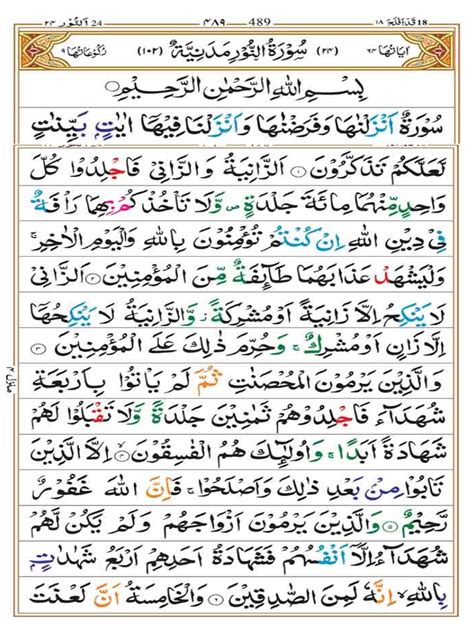 قد افلح ١٨ 18 ٤٨٩ 489 النّور ٢٤ 24
اٰيَاتُهَا ٦٤ (٢٤) سُوْرَةُ النُّوْرِ مَدَنِيَّةٌ (١٠٢) رُكُوْعَاتُهَا ٩
بِسْمِ اللهِ الرَّحْمٰنِ الرَّحِيْمِ
سُوْرَةٌ اَنْزَلْنٰهَا وَفَرَضْنٰهَا وَاَنْزَلْنَا فِيْهَا اٰيٰتٍۭ بَيِّنٰتٍ
لَّعَلَّكُمْ تَذَكَّرُوْنَ ۝١ اَلزَّانِيَةُ وَالزَّانِيْ فَاجْلِدُوْا كُلَّ
وَاحِدٍ مِّنْهُمَا مِائَةَ جَلْدَةٍ ۪ وَّلَا تَاْخُذْكُمْ بِهِمَا رَاْفَةٌ
فِيْ دِيْنِ اللهِ اِنْ كُنْتُمْ تُؤْمِنُوْنَ بِاللهِ وَالْيَوْمِ الْاٰخِرِ ۚ
وَلْيَشْهَدْ عَذَابَهُمَا طَآئِفَةٌ مِّنَ الْمُؤْمِنِيْنَ ۝٢ اَلزَّانِيْ
لَا يَنْكِحُ اِلَّا زَانِيَةً اَوْ مُشْرِكَةً ؗ وَّالزَّانِيَةُ لَا يَنْكِحُهَاۤ
اِلَّا زَانٍ اَوْ مُشْرِكٌ ۚ وَحُرِّمَ ذٰلِكَ عَلَى الْمُؤْمِنِيْنَ ۝٣
وَالَّذِيْنَ يَرْمُوْنَ الْمُحْصَنٰتِ ثُمَّ لَمْ يَاْتُوْا بِاَرْبَعَةِ
شُهَدَآءَ فَاجْلِدُوْهُمْ ثَمٰنِيْنَ جَلْدَةً وَّلَا تَقْبَلُوْا لَهُمْ
شَهَادَةً اَبَدًا ۚ وَاُولٰٓئِكَ هُمُ الْفٰسِقُوْنَ ۝٤ اِلَّا الَّذِيْنَ
تَابُوْا مِنْۢ بَعْدِ ذٰلِكَ وَاَصْلَحُوْا ۚ فَاِنَّ اللهَ غَفُوْرٌ
رَّحِيْمٌ ۝٥ وَالَّذِيْنَ يَرْمُوْنَ اَزْوَاجَهُمْ وَلَمْ يَكُنْ لَّهُمْ
شُهَدَآءُ اِلَّاۤ اَنْفُسُهُمْ فَشَهَادَةُ اَحَدِهِمْ اَرْبَعُ شَهٰدٰتٍۭ
بِاللهِ ۙ اِنَّهٗ لَمِنَ الصّٰدِقِيْنَ ۝٦ وَالْخَامِسَةُ اَنَّ لَعْنَتَ
منزل ٤